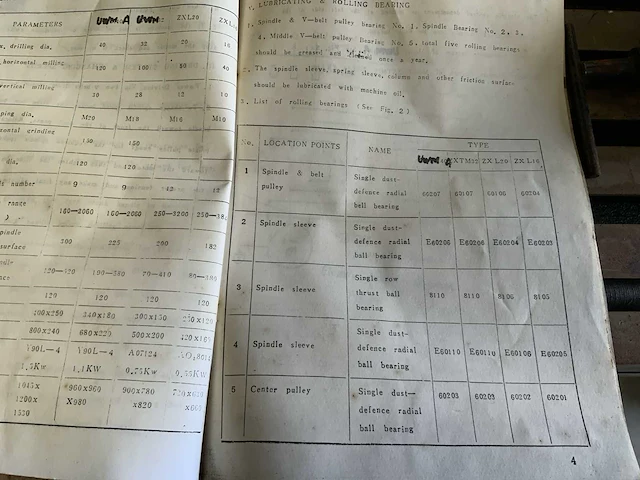 PARAMETERS ZXL20
x. drilling dia. 40 32 20 10
horizontal milling 120 100 80 40
vertical milling 30 28 12 10
ping dia. M20 M10 M10 M10
zontal grinding 150 150
dia. 120 120
ds number 9 9 12 12
range 160—2060 160—2060 250—3200
pindle
surface 200 225 200 182
100—580 70—410
120 120 120 120
400x250 340x180 300x150
800x240 680x220 500x200
Y90L—4 Y90L—4
1.5Kw 1.1KW 0.75Kw 0.55KW
960x960 900x780
1200x X980 x820 x660
1530
V. LUBRICATING & ROLLING BEARING
1. Spindle & V—belt pulley bearing No. 1. Spindle Bearing No. 2, 3,
4. Middle V—belt pulley Bearing No. 5. total five rolling bearings
should be greased and once a year.
2. The spindle sleeve, spring sleeve, column and other friction surface
should be lubricated with machine oil.
3. List of rolling bearings (See Fig. 2)
No. LOCATION POINTS NAME TYPE
ZXTM32 ZX L20 ZX L16
1 Spindle & belt pulley Single dust—defence radial ball bearing 60207 60107 60106 60204
2 Spindle sleeve Single dust—defence radial ball bearing E60206 E60206 E60204 E60203
3 Spindle sleeve Single row thrust ball bearing 8110 8110 8106 8105
4 Spindle sleeve Single dust—defence radial ball bearing E60110 E60110 E60106 E60205
5 Center pulley Single dust—defence radial ball bearing 60203 60203 60202 60201
4